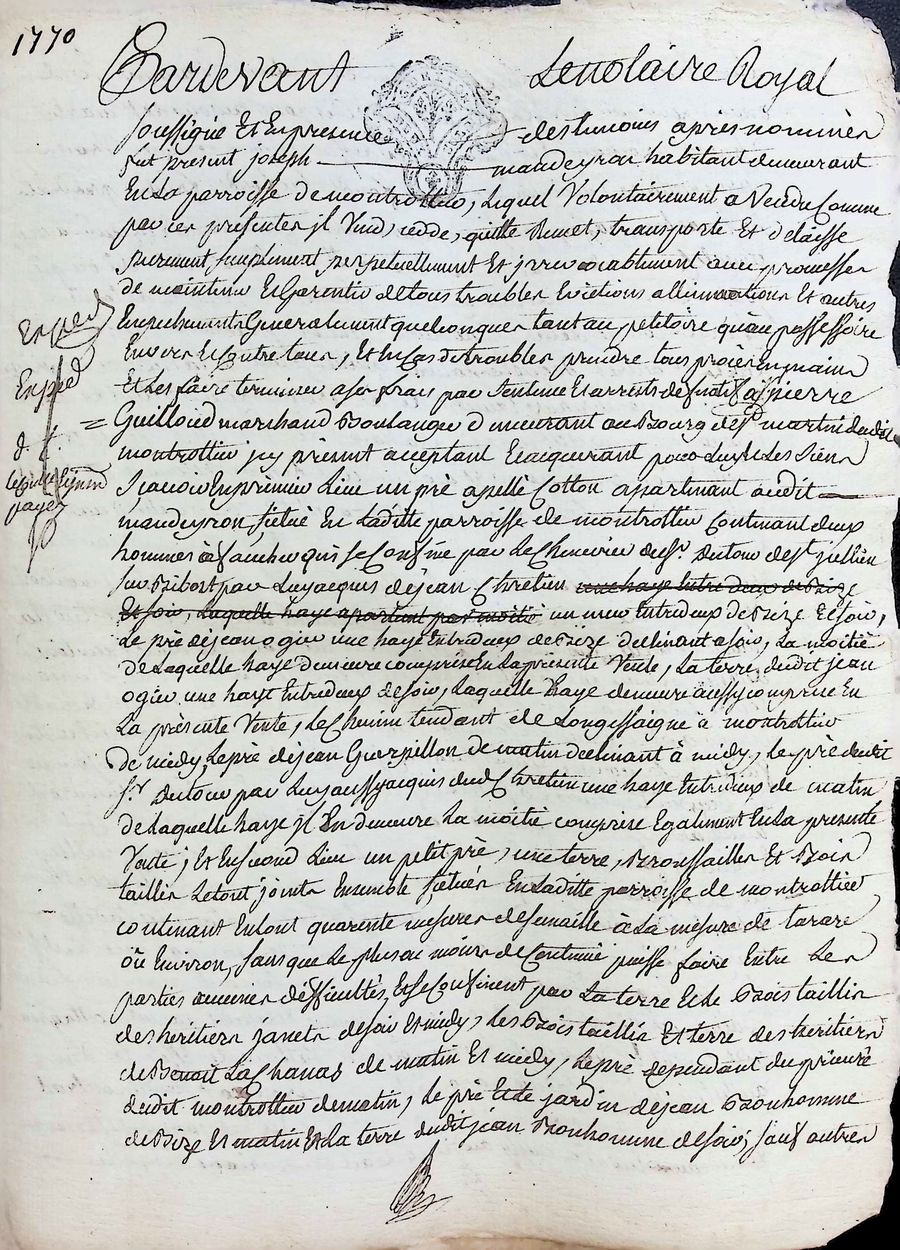 1770
Pardevant Le notaire Royal
soussigné Et En presence des temoins apres nommés
fut present joseph mandeyron habitant demeurant
En La parroisse de montrottier, Lequel Volontairement a Vendu Comme
par ces presentes jl Vend, cedde, quitte Remet, transporte Et délaisse
purement simplement perpetuellement Et jrrevocablement avec promesses
de maintenir Et Garentir de tous troubles Evictions allienations Et autres
Empechements Generalement quelconques tant au petitoire qu'au possessoire
Envers Et Contre tous, Et En Cas de troubles prendre tous procès En mains
Et Les faire terminer a ses frais par sentence Et arrests definitifs à Sr pierre
= Guilloud marchand Boulanger demeurant au Bourg de St martin dudit
montrottier jcy present acceptant Et acquerant pour Luy Et Les Siens
Sçavoir En premier Lieu un pré apellé Cotton apartenant audit
mandeyron, situé En Laditte parroisse de montrottier Contenant deux
hommes à faucher qui se Confine par Le Chenevier du Sr. Dutour de St jullien
sur Bibost par Luy acquis de jean Chretien une haye Entre deux de Bize
Et soir, Laquelle haye apartient par moitié un mur Entredeux de Bize Et soir,
Le pré de jean ogier une haye Entredeux de Bize declinant a soir, La moitié
de Laquelle haye demeure comprise En La présente Vente, La terre dudit jean
ogier une haye Entredeux de soir, Laquelle haye demeure aussy comprise En
La présente Vente, Le Chemin tendant de Longessaigne à montrottier
de midy, Le pré de jean Guerpillon de matin declinant à midy, Le pré dudit
Sr. Dutour par Luy aussy acquis dud. Chretien une haye Entredeux de matin
de Laquelle haye jl En demeure La moitié comprise Egalement En La presente
Vente; Et En second Lieu un petit pré, une terre, Broussailles Et Bois
taillis Le tout joints Ensemble situés En Laditte parroisse de montrottier
contenant En tout quarente mesures de semaille à La mesure de tarare
où Environ, sans que Le plus ou moins de Contenue puisse faire Entre Les
parties aucunes difficultés, Et se Confinent par La terre Et Le Bois taillis
des heritiers janets de soir Et midy, Les Bois taillis Et terre des heritiers
de Benoit La Chanas de matin Et midy, Le pré dependant du prieuré
dudit montrottier de matin, Le pré Et Le jardin de jean Bonhomme
de Bize Et matin Et La terre dudit jean Bonhomme de soir; sauf autres
Exped
Exped
payé